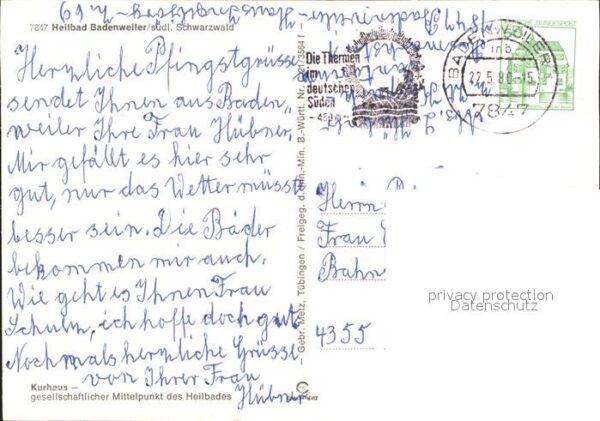 7847 Heilbad Badenweiler/südl. Schwarzwald
Herzliche Pfingstgrüsse
sendet Ihnen aus Baden„
weiler Ihre Frau Hübner,
Mir gefällt es hier sehr
gut, nur das Wetter müsste
besser sein. Die Bäder
bekommen mir auch.
Wie geht es Ihnen Frau
Schulm, ich hoffe doch gut.
Nochmals herzliche Grüsse
von Ihrer Frau
Hübner
Kurhaus –
gesellschaftlicher Mittelpunkt des Heilbades
Gebr. Metz, Tübingen / Freigeg. d. Inn.-Min. B.-Württ. Nr.
Die Thermen
im
deutschen
Süden
- 450 m -
BADENWEILER 1
mb
22.5.80-15
7847
DEUTSCHE BUNDESPOST
7847 Badenweiler
Herrn
Frau
Bahn
4355
privacy protection
Datenschutz